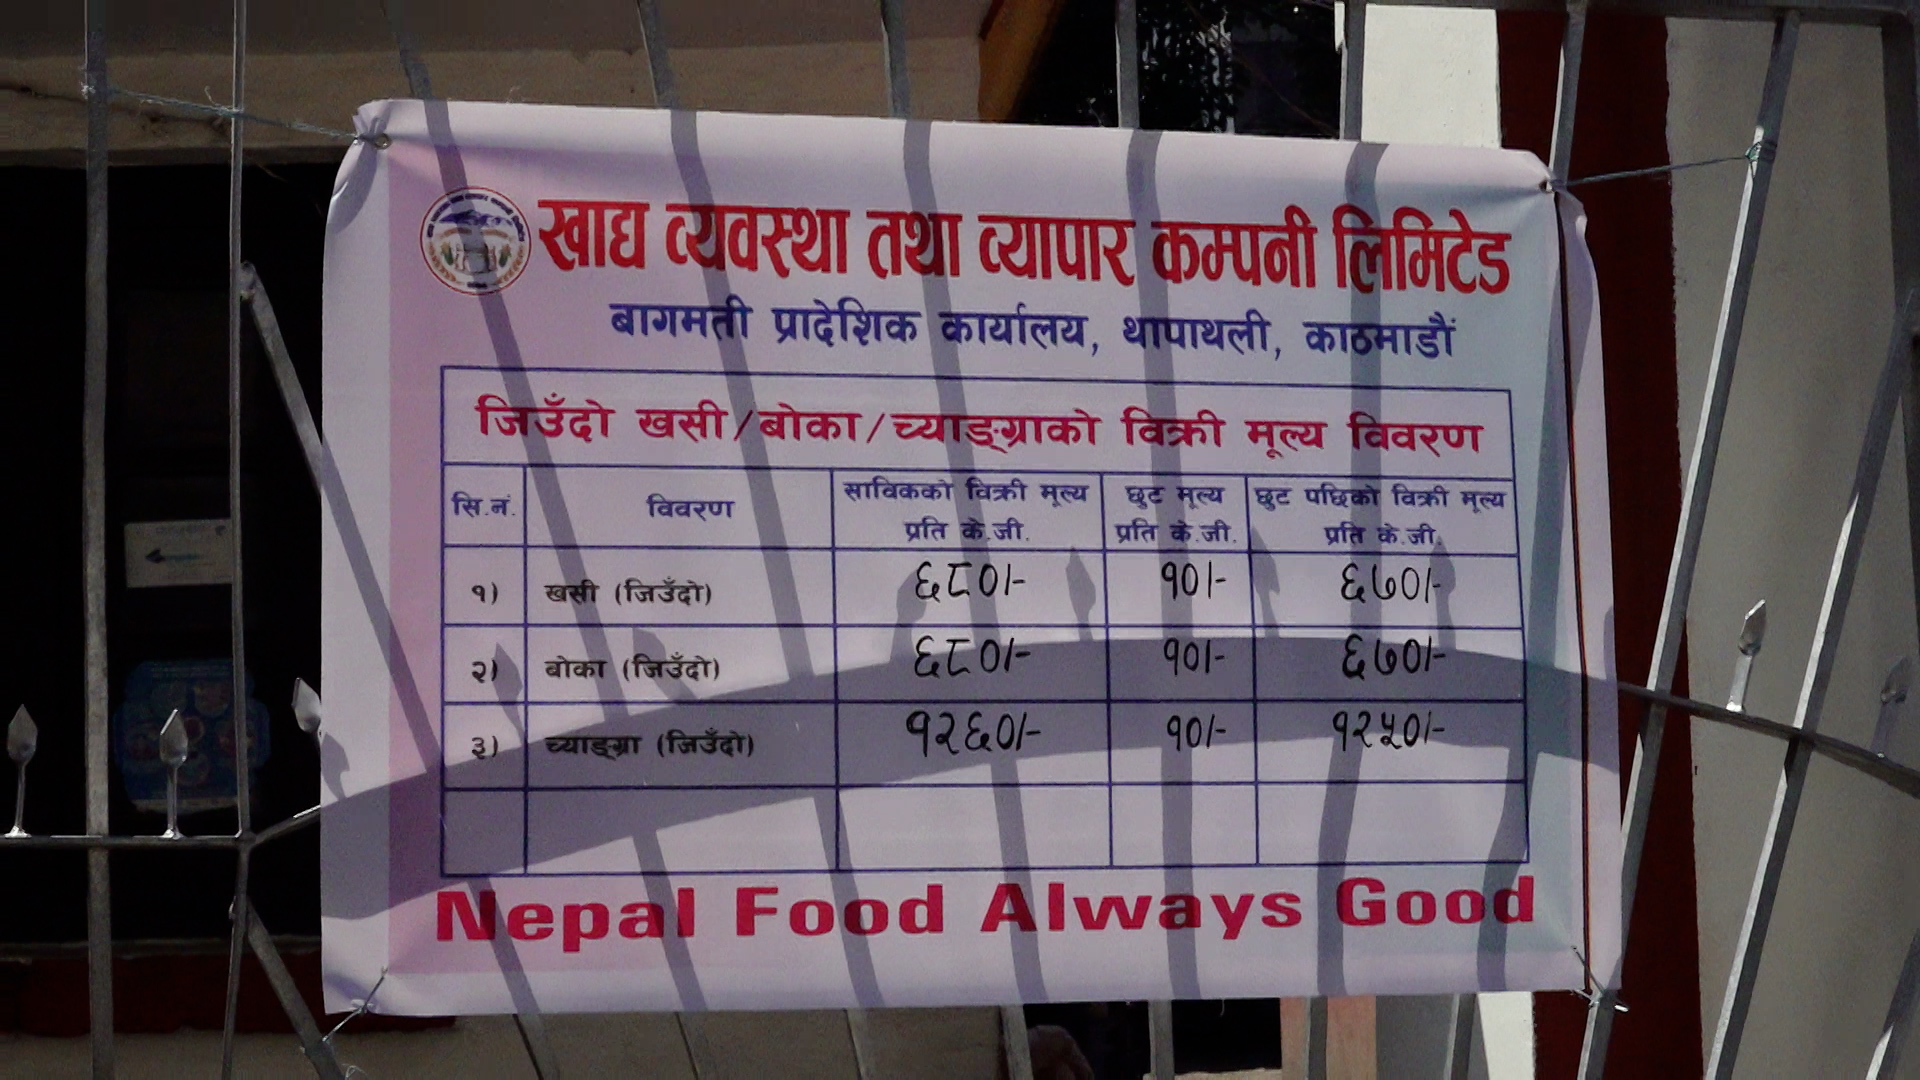 खाद्य व्यवस्था तथा व्यापार कम्पनी लिमिटेड
बागमती प्रादेशिक कार्यालय, थापाथली, काठमाडौं
जिउँदो खसी/बोका/च्याङ्ग्राको विक्री मूल्य विवरण
सि.नं. विवरण साविकको विक्री मूल्य प्रति के.जी. छुट मूल्य प्रति के.जी. छुट पछिको विक्री मूल्य प्रति के.जी.
१) खसी (जिउँदो) ६८०/- १०/- ६७०/-
२) बोका (जिउँदो) ६८०/- १०/- ६७०/-
३) च्याङ्ग्रा (जिउँदो) १२६०/- १०/- १२५०/-
Nepal Food Always Good